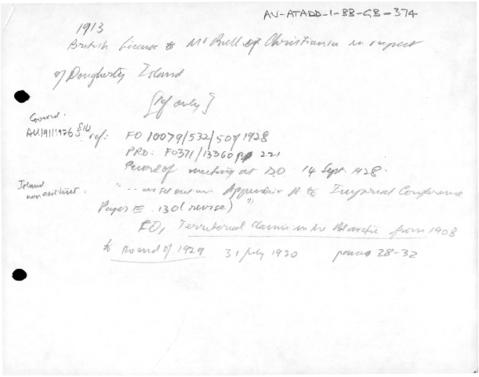 AU-ATADD-1-BB-GB-374
1913
British Licence to Mr Bull of Christiania in respect
of Dougherty Island
[ref only]
ref: FO 10079/532/50 of 1928
PRO: FO371/13360 pp 221
Record of meeting at DO 14 Sept 1928.
Island
non existent.
"... as set out in Appendix A to Imperial Conference
Paper E. 130 (revise)"
Territorial Claims in the Antarctic from 1908
to 1929 31 July 1930 28-32